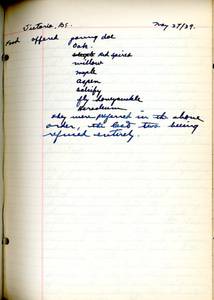 Victoria, B.C. May 29/39.
Food offered young doe
Oak.
red spirea
willow
maple
aspen
salsify
fly honeysuckle
Heracleum
they were preferred in the above
order, the last two being
refused entirely.